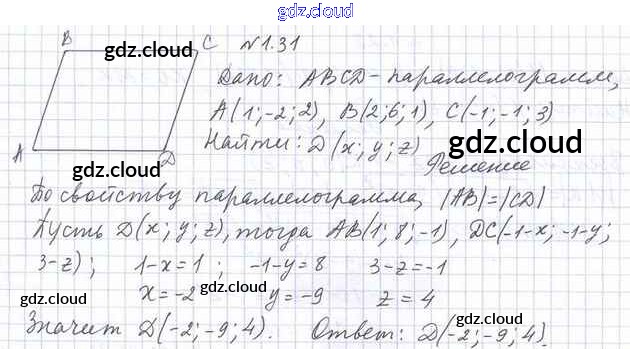 gdz.cloud
B gdz.cloud C №1.31
Дано: ABCD - параллелограмм,
gdz.cloud
A(1;-2;2), B(2;6;1), C(-1;-1;3)
Найти: D(x; y; z) gdz.cloud
A gdz.cloud D
Решение
По свойству параллелограмма, |AB|=|CD|
gdz.cloud
Пусть D(x; y; z), тогда AB(1; 8; -1), DC(-1-x; -1-y;
3-z); 1-x=1; -1-y=8 3-z=-1
gdz.cloud x=-2 gdz.cloud y=-9 z=4
gdz.cloud
Значит D(-2;-9;4). Ответ: D(-2;-9;4).
gdz.cloud